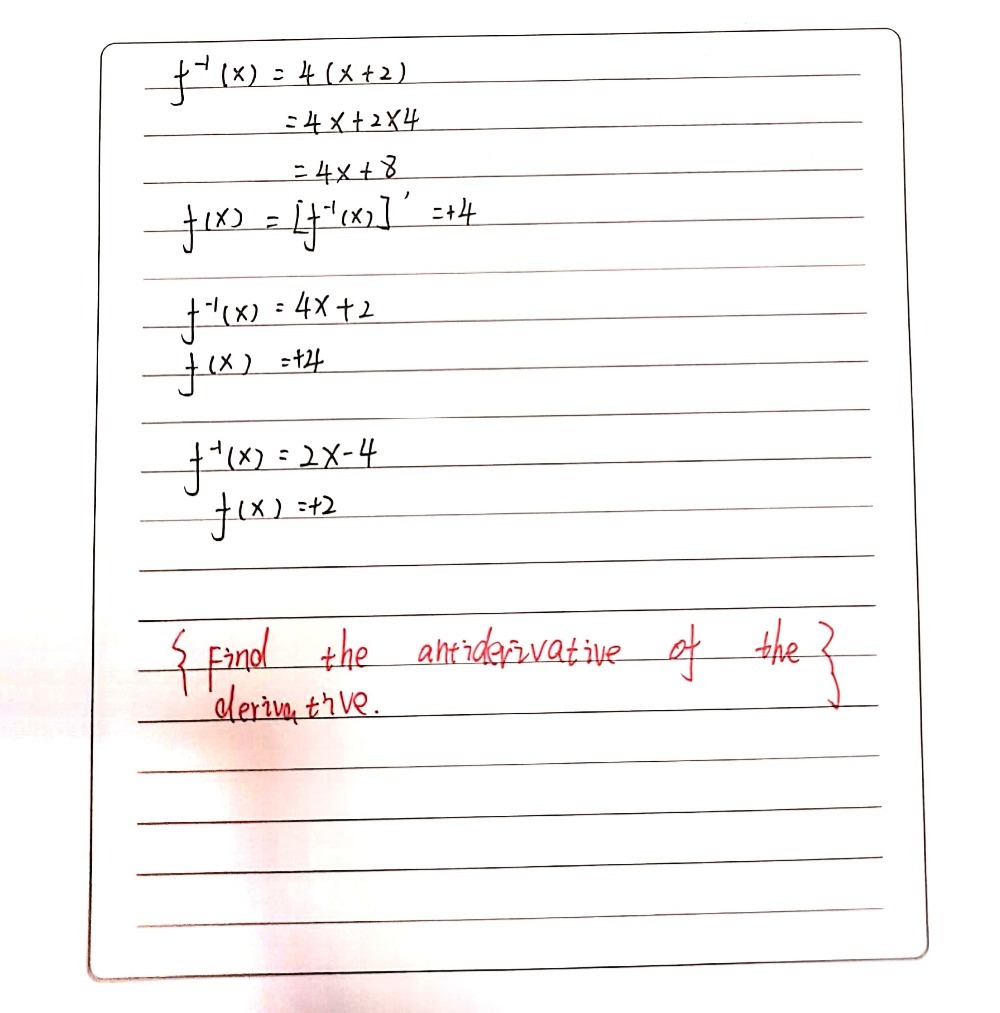 f⁻¹(x) = 4(x+2)
= 4x+2×4
= 4x+8
f(x) = [f⁻¹(x)]' =+4
f⁻¹(x) = 4x+2
f(x) =+4
f⁻¹(x) = 2x-4
f(x) =+2
{ Find the antiderivative of the }
derivative.